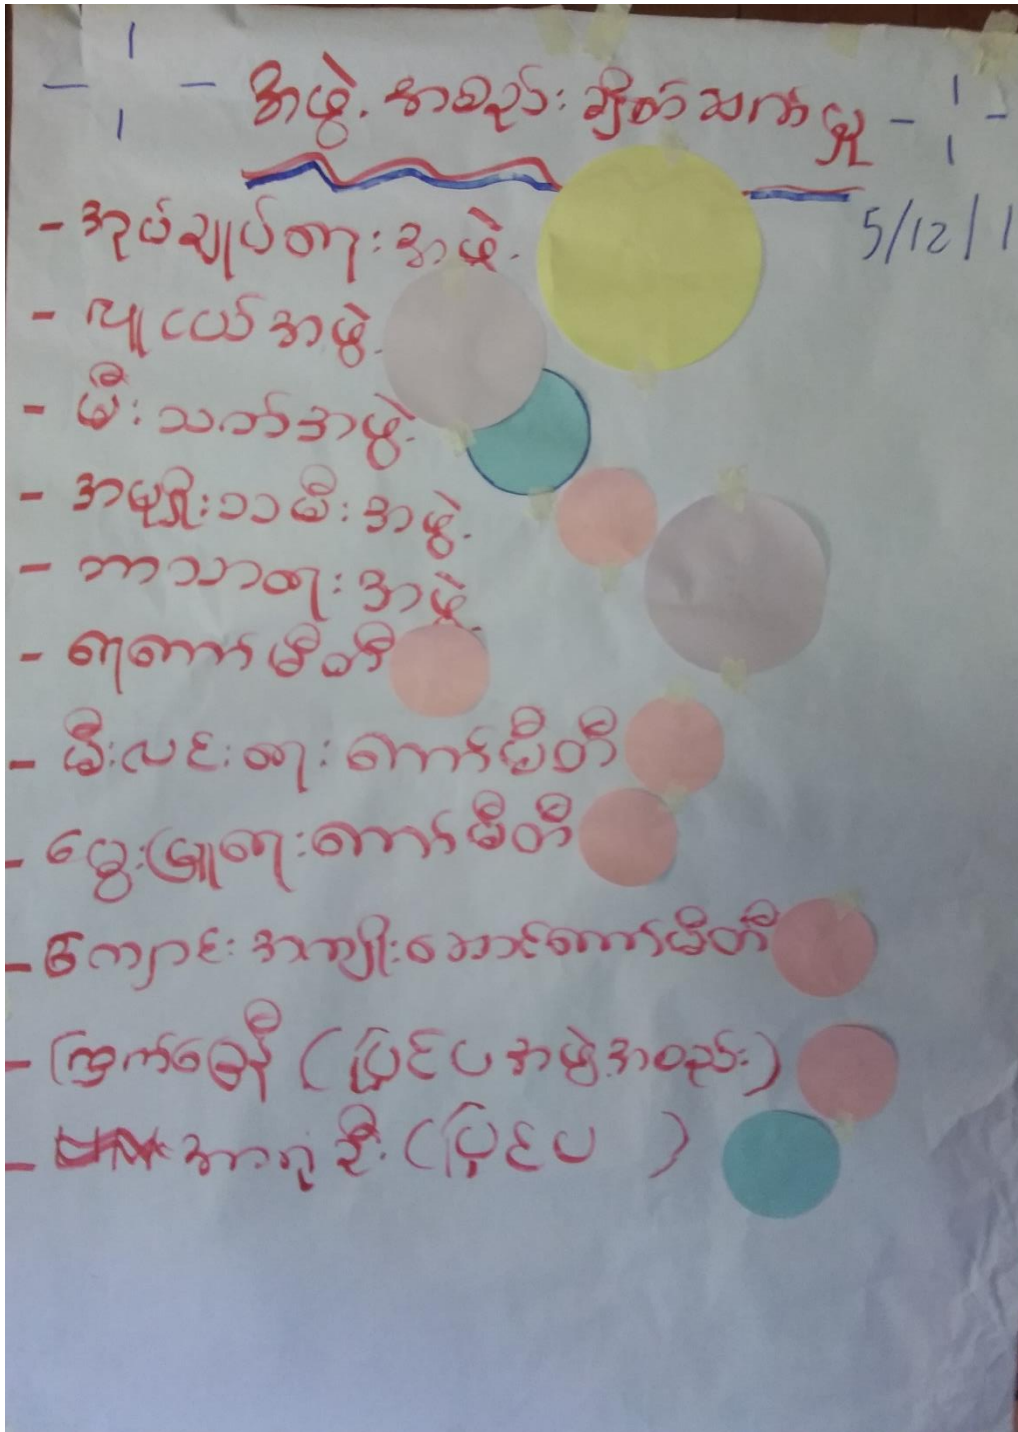 အဖွဲ့အစည်းချိတ်ဆက်မှု
5/12/1
- အုပ်ချုပ်ရေးအဖွဲ့
- လူငယ်အဖွဲ့
- မီးသတ်အဖွဲ့
- အမျိုးသမီးအဖွဲ့
- ဘာသာရေးအဖွဲ့
- ရေကော်မီတီ
- မီးလင်းရေးကော်မီတီ
- မွေးမြူရေးကော်မီတီ
- ကျောင်းအကျိုးဆောင်ကော်မီတီ
- ကြက်ခြေနီ (ပြင်ပအဖွဲ့အစည်း)
- (ပြင်ပ )